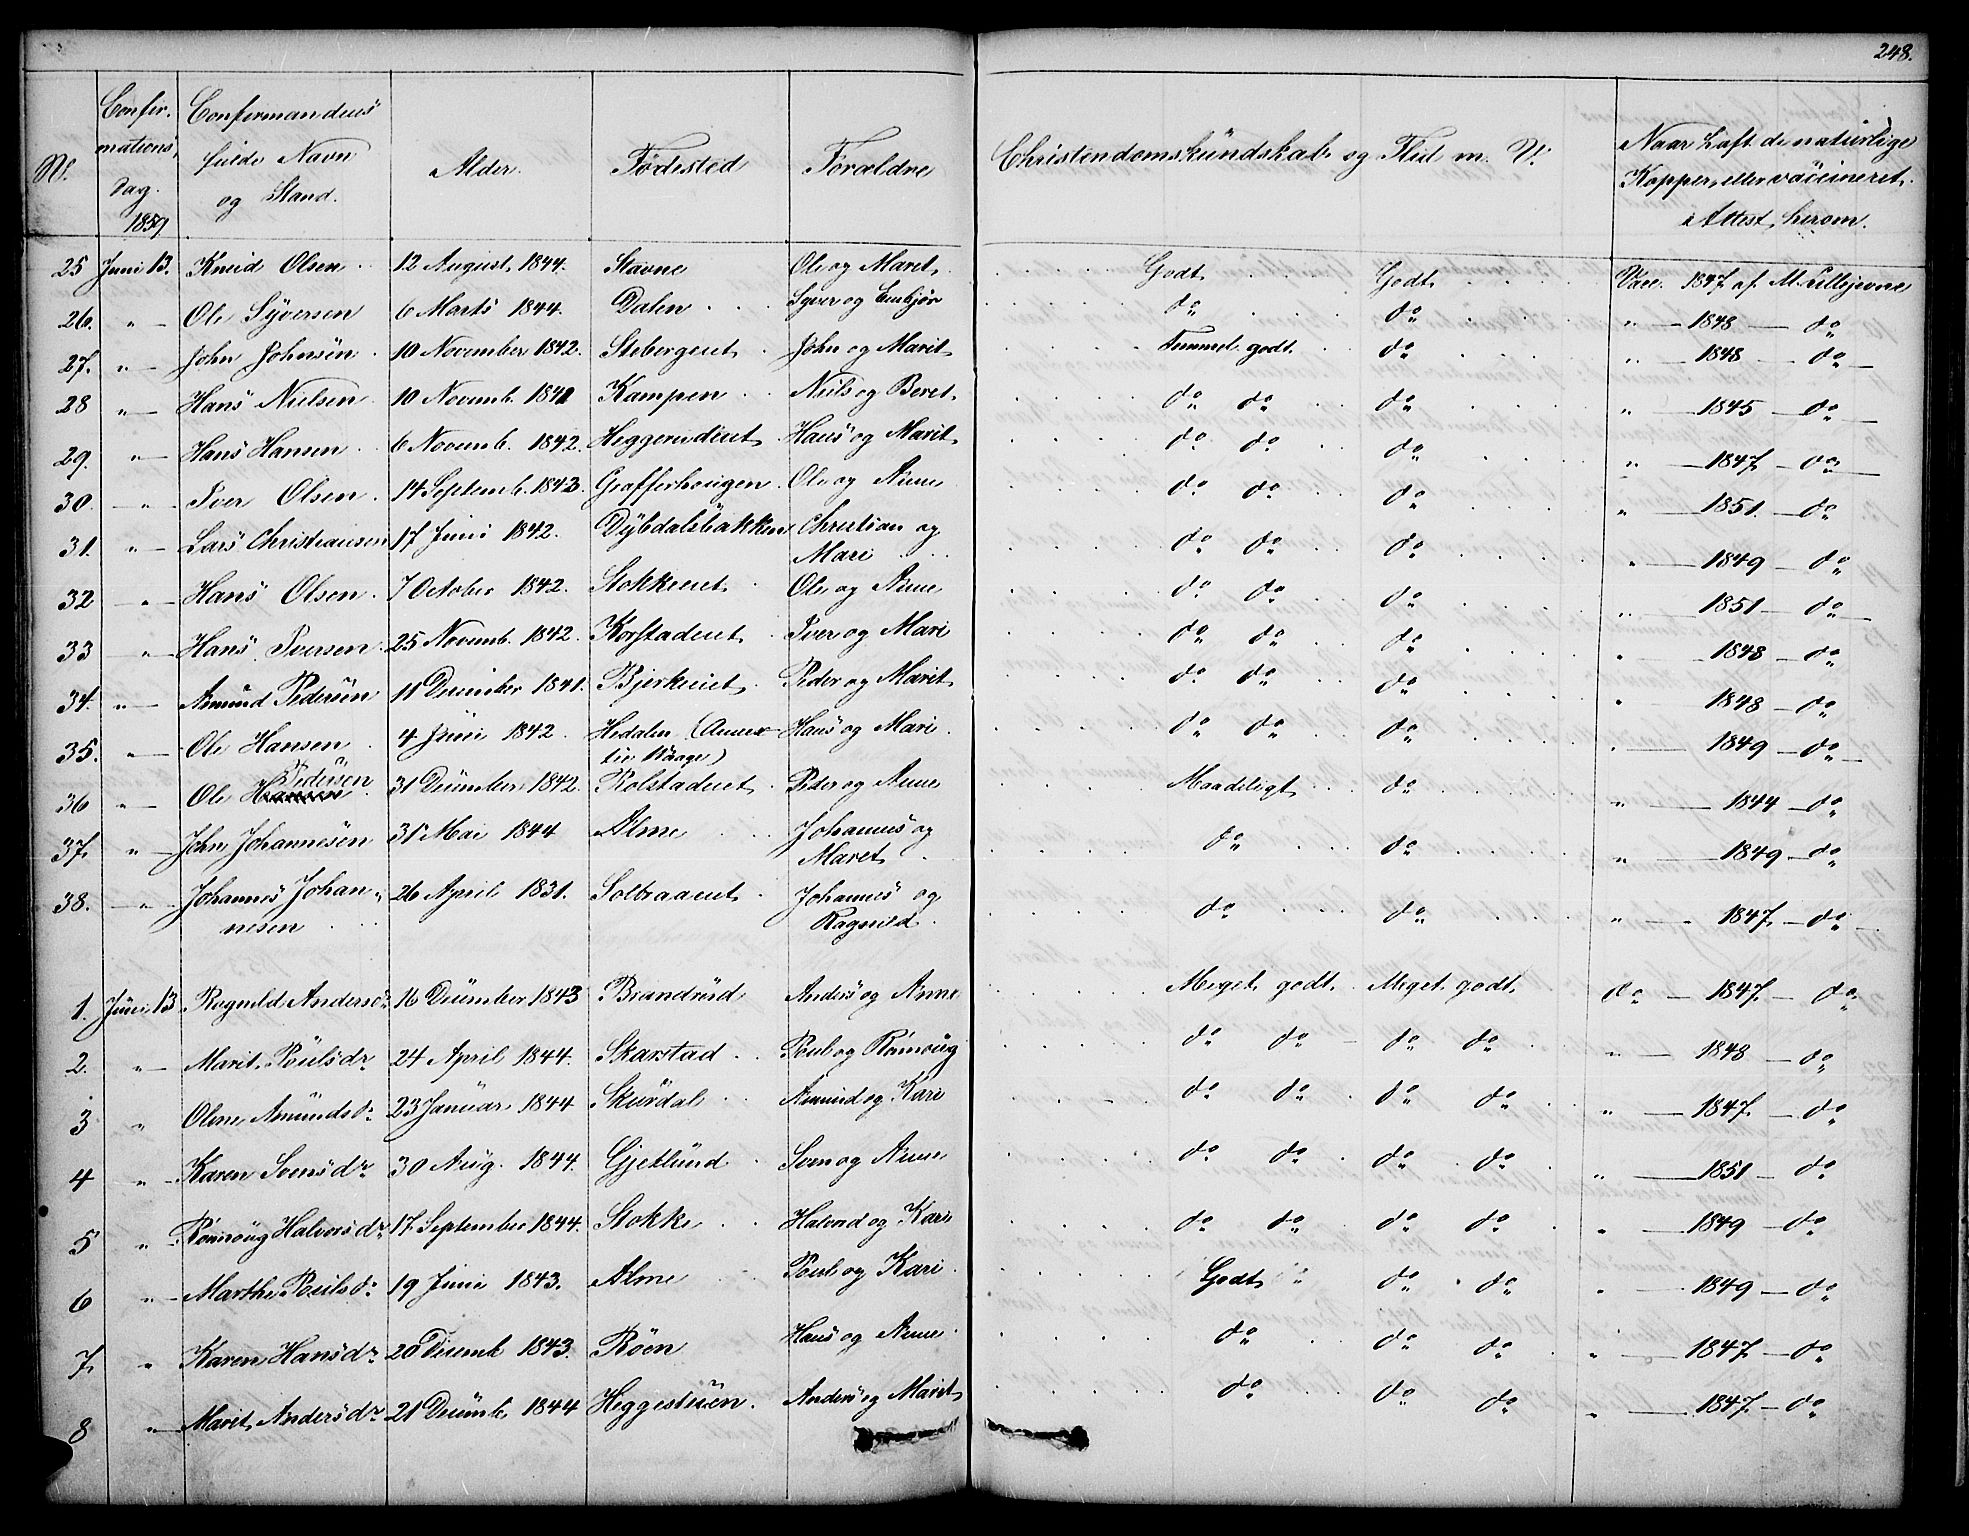 248.
No. Confirmations Dag. 1859 Confirmandens fulde Navn og Stand. Alder. Fødested Forældre Christendomskundskab og Flid m. V. Naar havt de naturlige Kopper, eller vaccineret, Attest herom.
25 Juni 13. Knud Olsen 12 August 1844. Stavne Ole og Maret Godt Godt Vacc. 1847 af M. Lillejevne
26. " Ole Syversen 6 Marts 1844. Dalen Syver og Embjør do do " 1848 do
27. " John Johnsen 10 November 1842. Stebergeiet John og Marit Temmel. godt do " 1848 do
28 " Hans Nielsen 10 Novemb. 1842 Kampen Niels og Beret do do do " 1845 do
29. " Hans Hansen 6 Novemb. 1842. Heggerudeiet Hans og Marit do do do " 1847 do
30. " Iver Olsen 14 Septemb. 1843. Grafferhougen Ole og Anne do do do " 1851 do
31. " Lars Christiansen 17 Juni 1842. Dybdalsbakken Christian og Mari do do do " 1849 do
32 " Hans Olsen 7 October 1842. Stokkeeiet Ole og Anne do do do " 1851 do
33 " Hans Iversen 25 Novemb. 1842. Korstadeiet Iver og Mari do do do " 1848 do
34. " Amund Pedersen 11 December 1841. Bjerkeeiet Peder og Marit do do do " 1848 do
35. " Ole Hansen 4 Juni 1842. Hedalen (Annex til Vaage) Hans og Mari do do do " 1849 do
36 " Ole Hansen Pedersen 31 December 1842. Kolstadeiet Peder og Anne Maadeligt do " 1844 do
37. " John Johannesen 31 Mai 1844 Alme Johannes og Maret do do " 1849 do
38. " Johannes Johannesen 26 April 1831. Solbraaeiet Johannes og Ragnild do do " 1847 do
1. Juni 13 Ragnild Andersdr 16 December 1843 Brandrud Anders og Anne Meget godt Meget godt do 1847 do
2. " Marit Poulsdr 24 April 1844. Skarstad Poul og Rønnoug do do do do " 1848 do
3 " Olene Amundsdr 23 Januar 1844 Skurdal Amund og Kari do do do do " 1847 do
4 " Karen Svensdr 30 Aug. 1844. Gjetlund Sven og Anne do do do do " 1851 do
5 " Rønnoug Halvorsdr 17 September 1844. Stokke Halvord og Kari do do do do " 1849 do
6 " Marthe Poulsdr 19 Juni 1843. Alme Poul og Kari Godt do do " 1849 do
7 " Karen Hansdr 20 Decemb. 1843. Røen Hans og Anne do do do " 1847 do
8 " Marit Andersdr 21 Decemb. 1844 Heggestuen Anders og Marit do do do " 1847 do